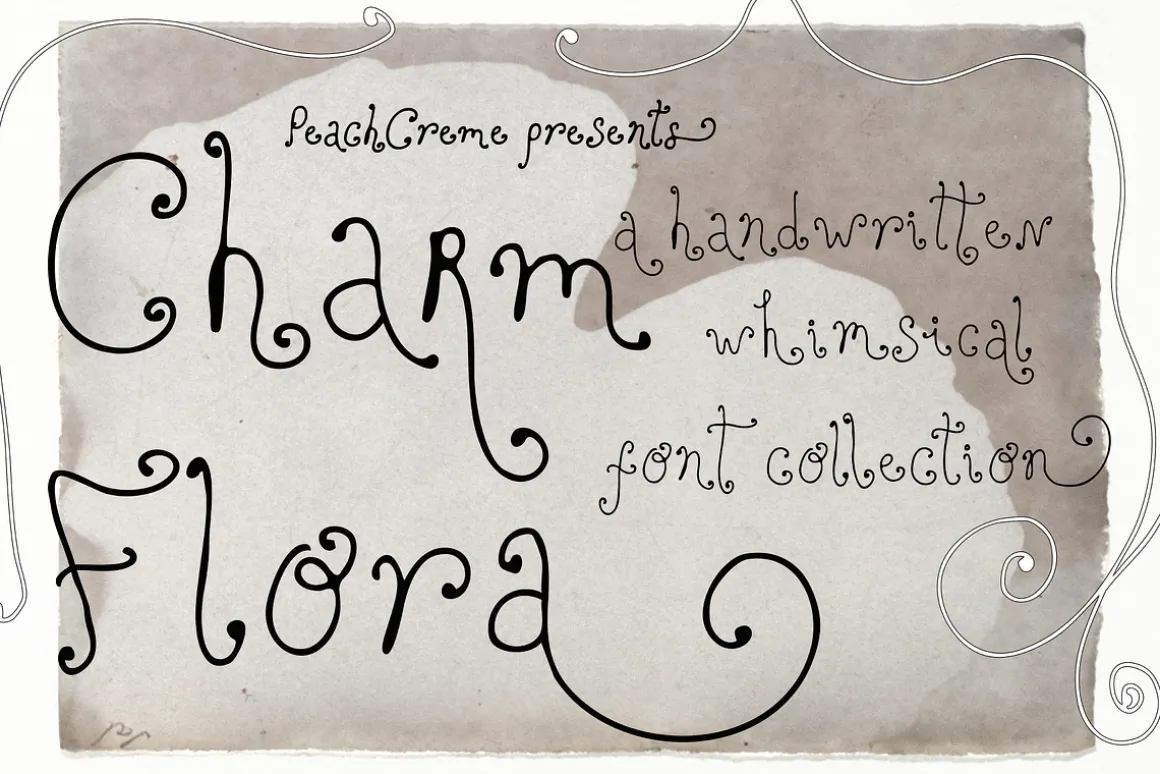 PeachCreme presents
Charm
a handwritten
whimsical
Flora
font collection